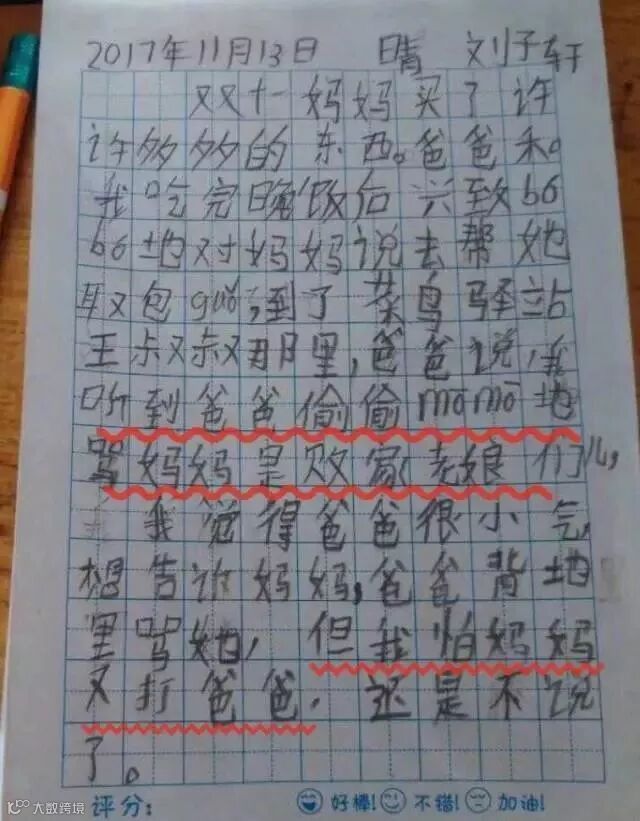 2017年11月13日 晴 刘子轩
双十一妈妈买了许
许多多的东西。爸爸和。
我吃完晚饭后兴致bó
bó地对妈妈说去帮她
取包guǒ,到了菜鸟驿站
王叔叔那里,爸爸说,我
听到爸爸偷偷mōmō地
骂妈妈是败家老娘们儿,
我觉得爸爸很小气,
想告诉妈妈,爸爸背地
里骂她,但我怕妈妈
又打爸爸,还是不说
了。
评分: 好棒! 不错! 加油!
K100 大数跨境